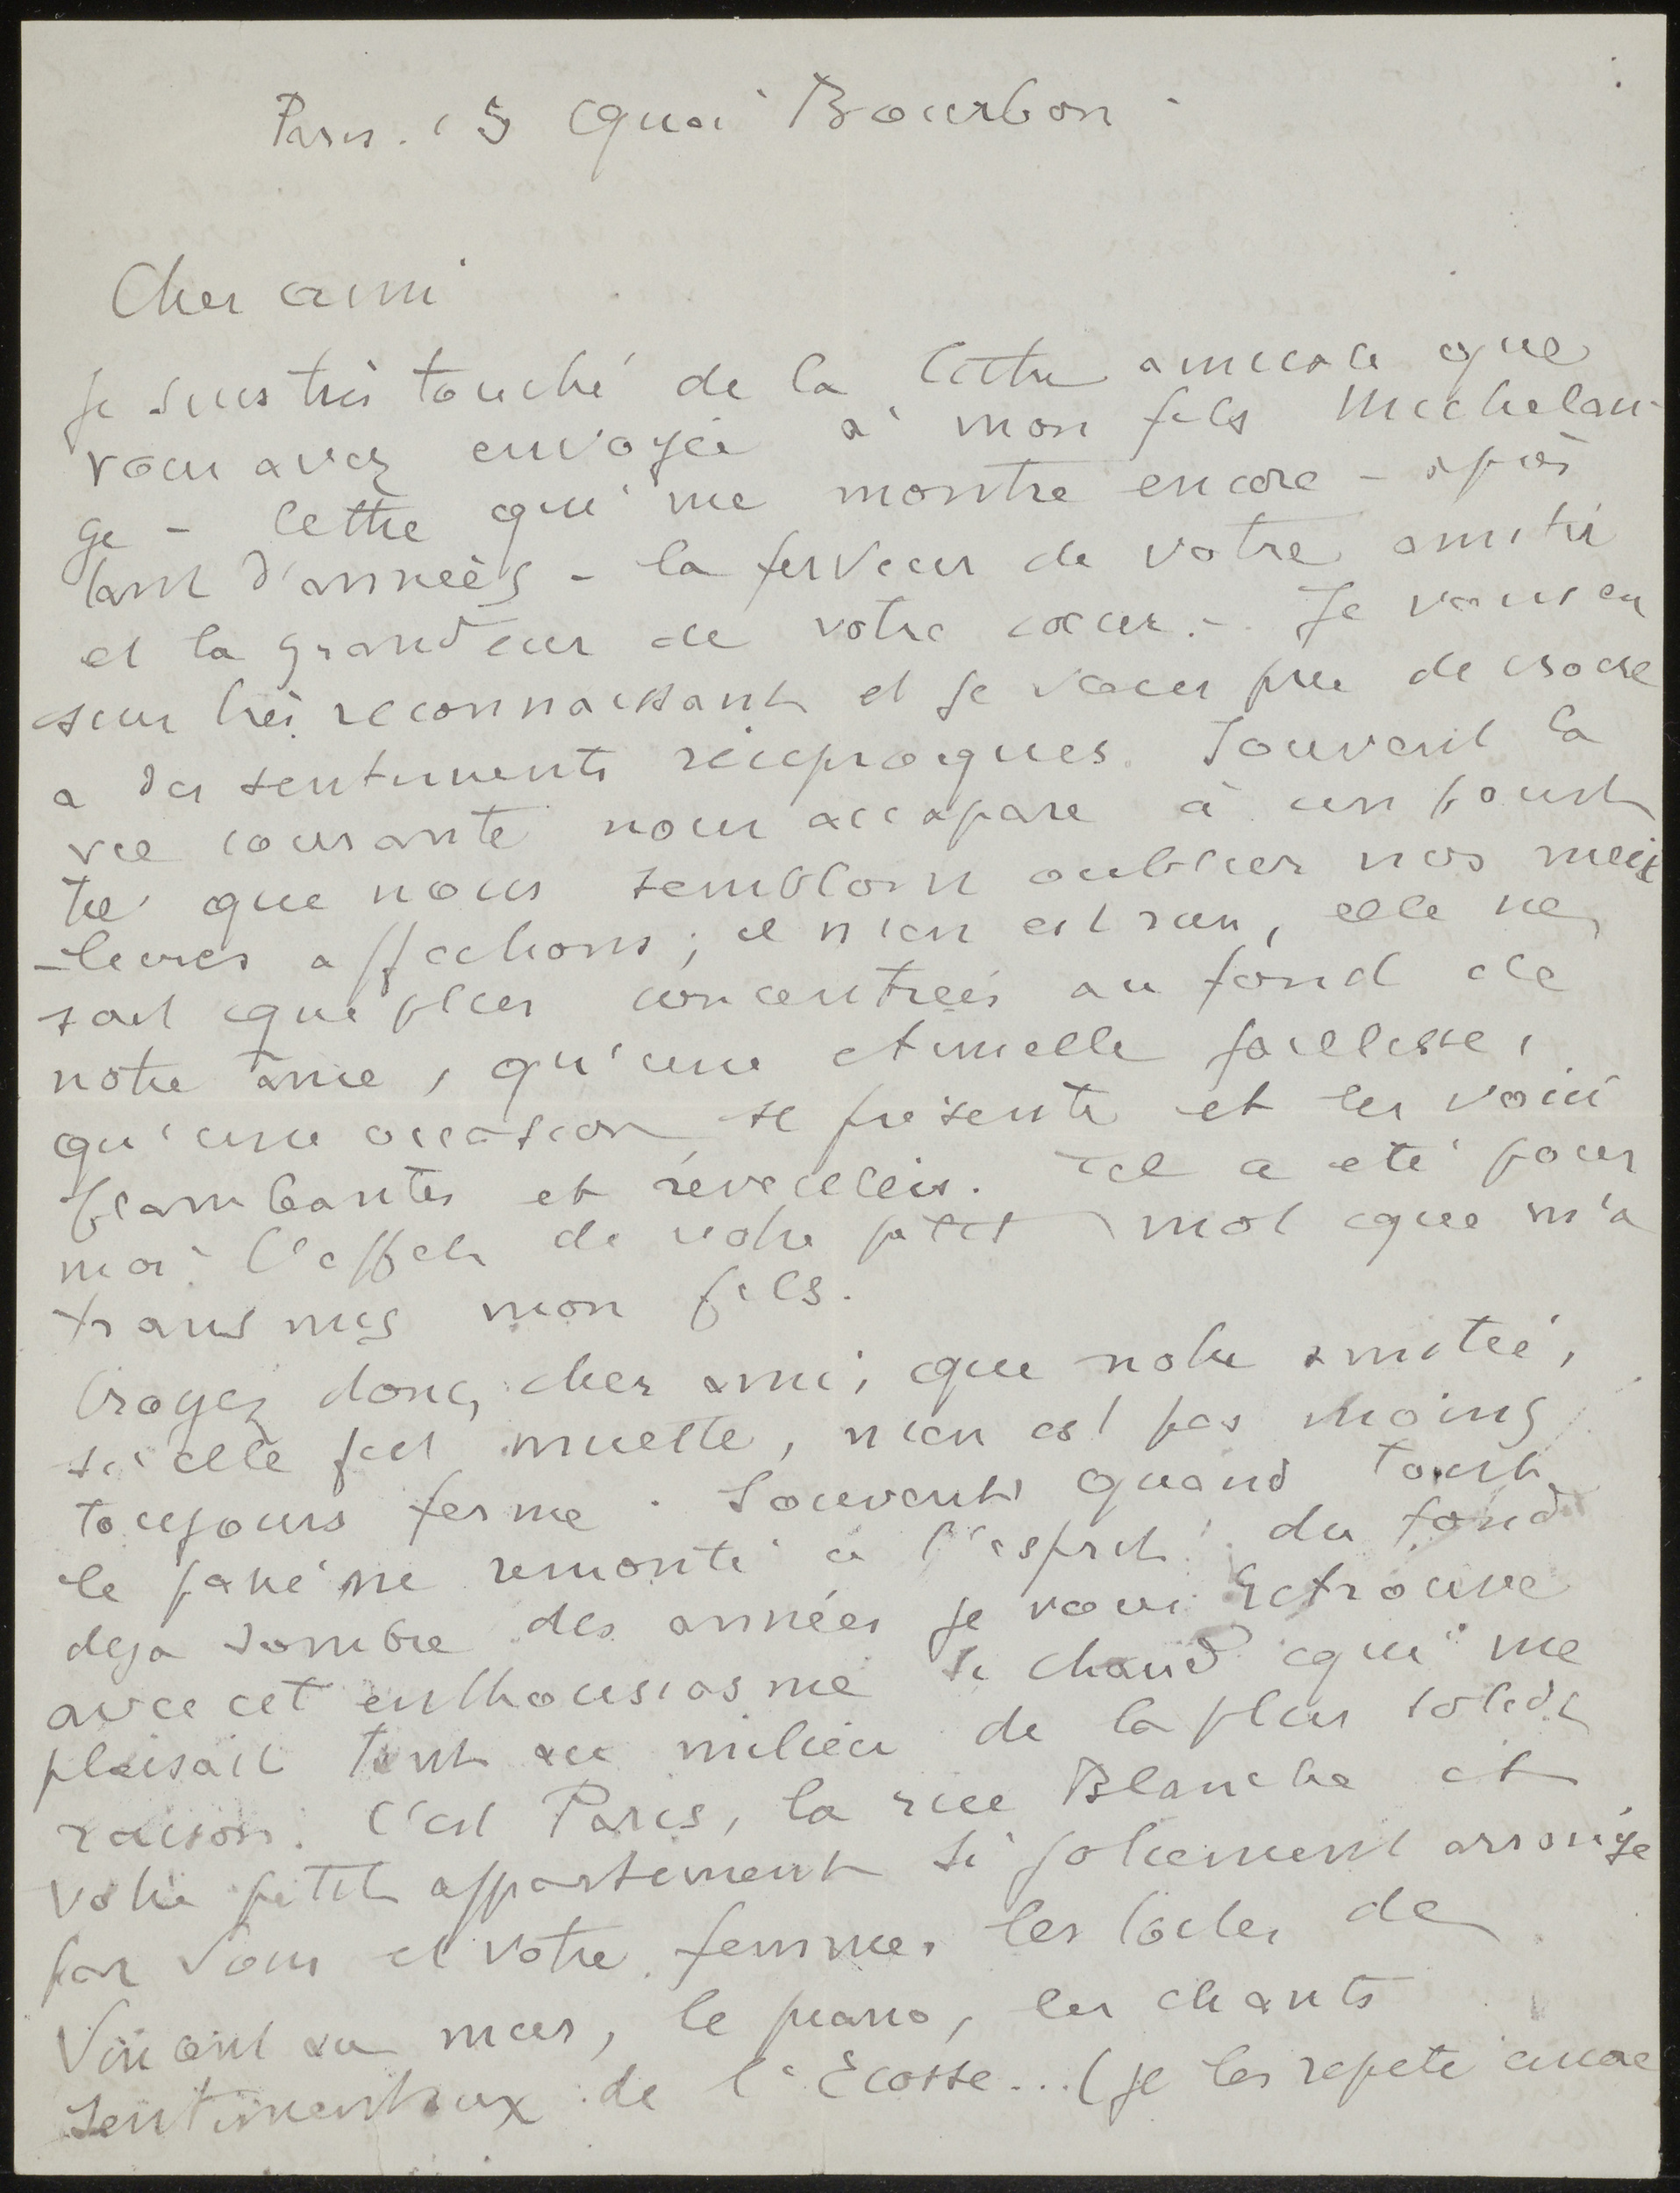 Paris. 15 Quai Bourbon
Cher ami
Je suis très touché de la lettre amicale que
vous avez envoyée à mon fils Michelan-
ge - lettre qui me montre encore - après
tant d'années - la ferveur de votre amitié
et la grandeur de votre cœur. - Je vous en
suis très reconnaissant et je vous prie de croire
a des sentiments réciproques. Souvent la
vie courante nous accapare à un point
tel que nous semblons oublier nos meil
-leures affections ; il n'en est rien, elle ne
sont que plus concentrées au fond de
notre âme, qu'une étincelle jaillisse,
qu'une occasion se présente et les voici
flambantes et réveillées. Tel a été pour
moi l'effet de votre petit mot que m'a
transmis mon fils.
Croyez donc, cher ami, que notre amitié,
si elle fut muette, n'en est pas moins
toujours ferme. Souvent quand tout
le passé me remonte à l'esprit du fond
deja sombre des années je vous retrouve
avec cet enthousiasme si chaud qui me
plaisait tant au milieu de la plus solide
raison. C'est Paris, la rue Blanche et
votre petit appartement si joliement arrangé
par vous et votre femme, les toiles de
Vincent au mur, le piano, les chants
sentimentaux de l'Ecosse... (je les repete encore